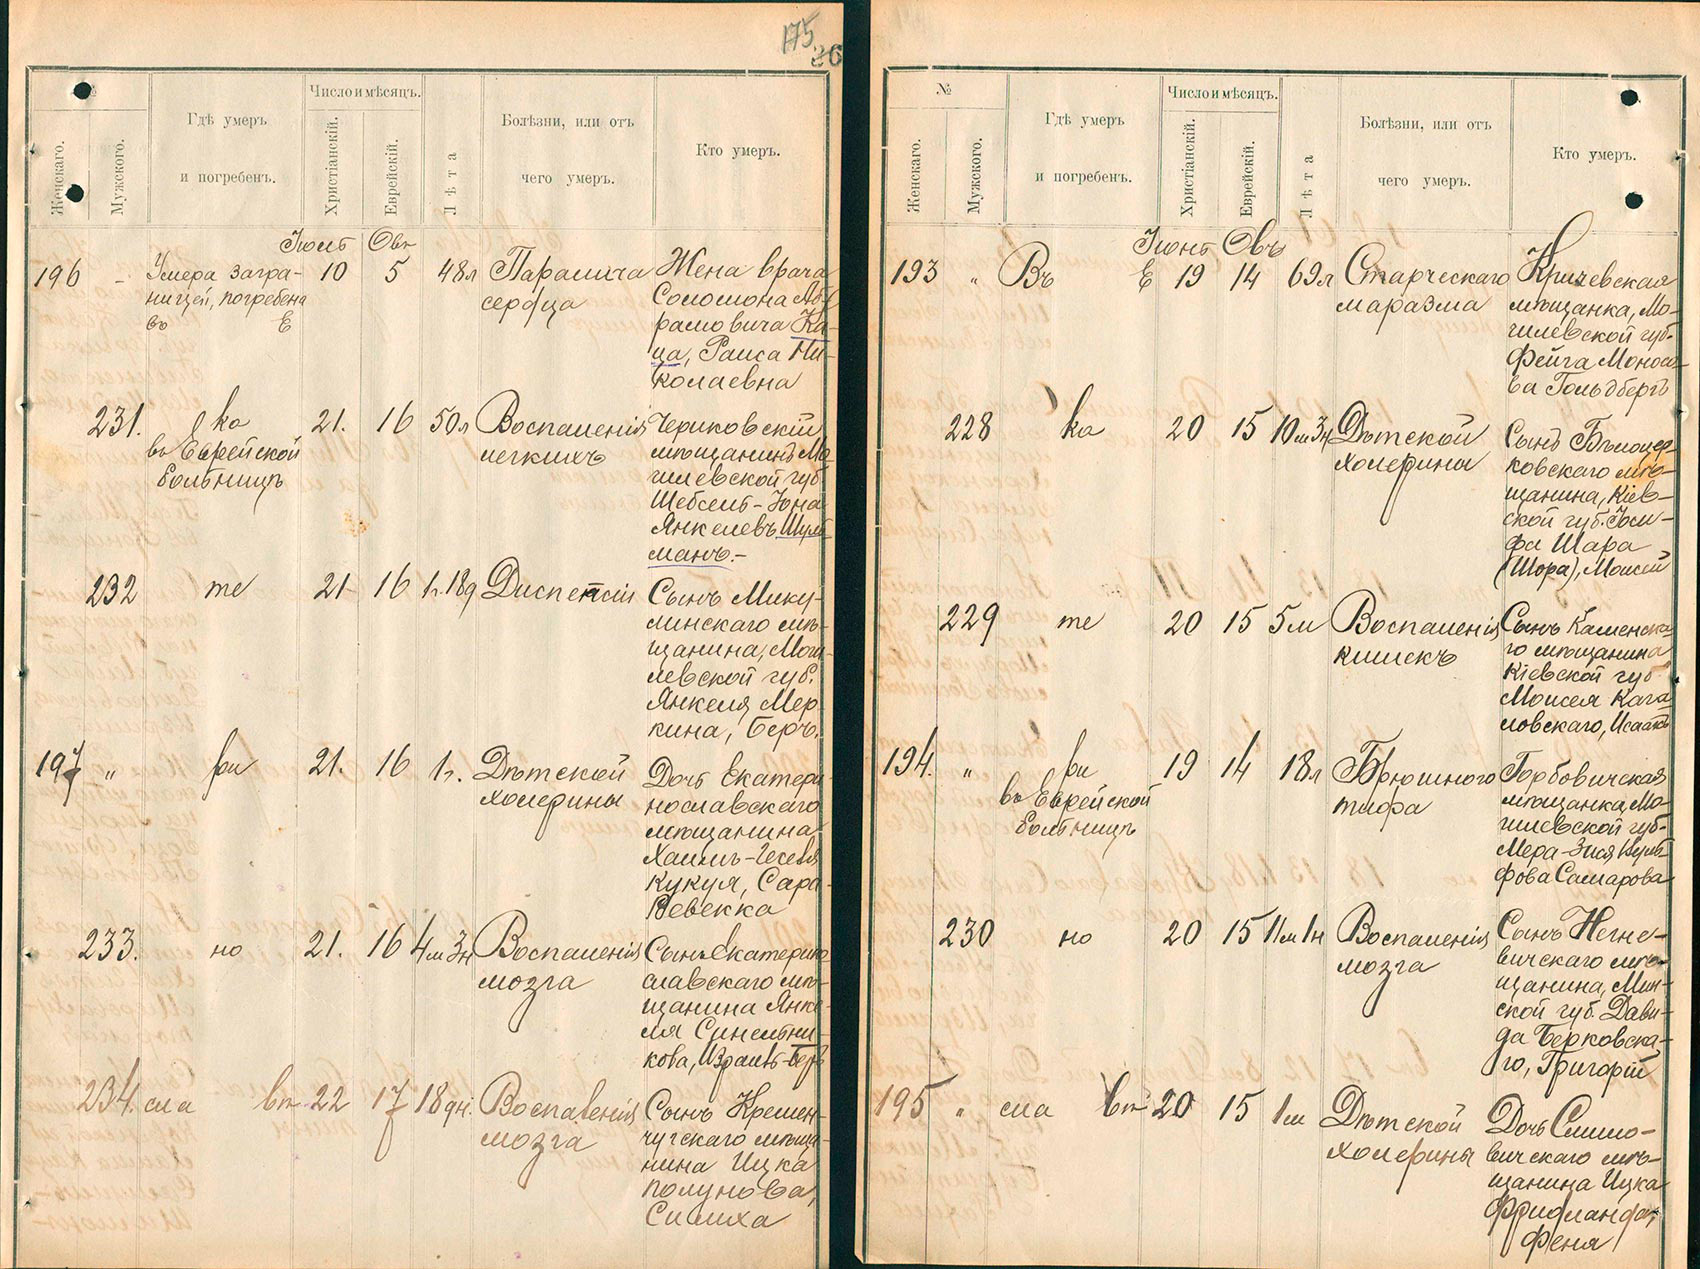 175
26
№
Число и мѣсяцъ.
Женскаго.
Мужского.
Гдѣ умеръ
и погребенъ.
Христіанскій.
Еврейскій.
Лѣта
Болѣзни, или отъ
чего умеръ.
Кто умеръ.
Іюнь Овъ
196 - Умера загра-
ницей, погребена
въ Е
10 5 48л Паралича
сердца
Жена врача
Соломона Аб-
рамовича Ка-
ца, Раиса Ни-
колаевна
231. ка
въ Еврейской
больницѣ
21. 16 50л Воспаленія
легкихъ
Чериковскій
мѣщанинъ Мо
гилевской губ
Шебсель-Іона
Янкелевъ Шуль
манъ.-
232 те 21 16 1г.18д Диспепсіи
Сынъ Мику-
линскаго мѣ-
щанина, Моги-
левской губ.
Янкеля Мер
кина, Беръ.
197 " ри 21. 16 1г. Дѣтской
холерины
Дочь Екатери-
нославскаго
мѣщанина
Кукуя, Сара-
Ревекка
233. но 21. 16 4м 3н Воспаленія
мозга
Сынъ Екатерино
славскаго мѣ-
щанина Янке-
ля Синельни-
кова, Израиль-Беръ
234. сла вт 22 17 18дн. Воспаленія
мозга
Сынъ Кремен-
чугскаго мѣща-
нина Ицка
Полунова,
Симха
№
Число и мѣсяцъ.
Женскаго.
Мужского.
Гдѣ умеръ
и погребенъ.
Христіанскій.
Еврейскій.
Лѣта
Болѣзни, или отъ
чего умеръ.
Кто умеръ.
Іюнь Овъ
193 " Въ Е 19 14 69л Старческаго
маразма
Кричевская
мѣщанка, Мо-
гилевской губ.
Фейга Моносо-
ва Гольдбергъ
228 ка 20 15 10м3н Дѣтской
холерины
Сынъ Бѣлоцер
ковскаго мѣ-
щанина, Кіев-
ской губ. Іоси-
фа Шара
(Шора), Моисей
229 те 20 15 5м Воспаленія
кишекъ
Сынъ Каменска
го мѣщанина
Кіевской губ
Моисея Кага
ловскаго, Исаакъ
194. " ри
въ Еврейской
больницѣ
19 14 18л Брюшного
тифа
Горбовичская
мѣщанка, Мо-
гилевской губ.
Мера-Зися Вуль
фова Самарова
230 но 20 15 11м 1н Воспаленія
мозга
Сынъ Негне-
вичскаго мѣ-
щанина, Мин-
ской губ. Дави-
да Берковска-
го, Григорій
195 " сла вт 20 15 1м Дѣтской
холерины
Дочь Смило-
вичскаго мѣ-
щанина Ицка
Фридланда,
Феня